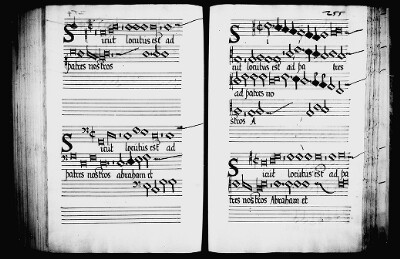 Sicut locutus est ad
patres nostros
Sicut locutus est ad
patres nostros abraham et
255
Si
cut locutus est ad pa tres
ad patres no
stros A
Sicut locutus est ad pa
tres nostros Abraham et